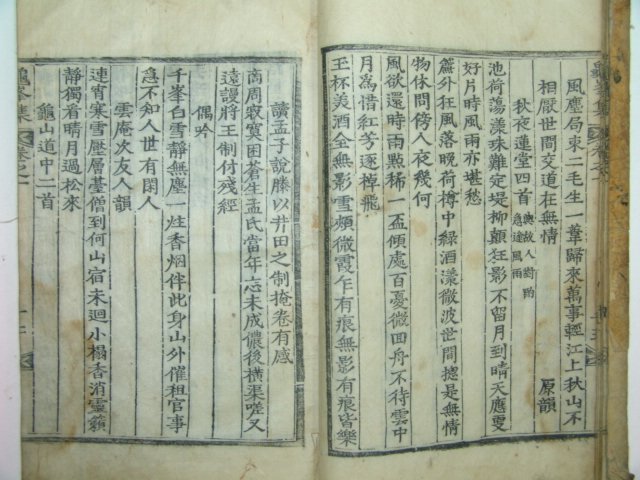 風塵局束二毛生一葦歸來萬事輕江上秋山不
相厭世間交道在無情 原韻
秋夜蓮堂四首
池荷蕩漾珠難定堤柳顛狂影不留月到晴天應更
好片時風雨亦堪愁
簾外狂風落晚荷樽中綠酒漾微波世間摠是無情
物休問傍人夜幾何
風欲還時雨點稀一盃傾處百憂微回舟不待雲中
月為惜紅芳逐棹飛
玉杯美酒全無影雪頰微霞乍有痕無影有痕皆樂
讀孟子說滕以井田之制掩卷有感
商周寂寞困蒼生孟氏當年志未成儂後橫渠嗟又
遠謾將王制付殘經
偶吟
千峯白雪靜無塵一炷香烟伴此身山外催租官事
急不知人世有閑人
雲庵次友人韻
連宵寒雪壓層臺僧到何山宿未迴小榻香消靈籟
靜獨看晴月過松來
龜山道中二首
龜峯集 卷之一